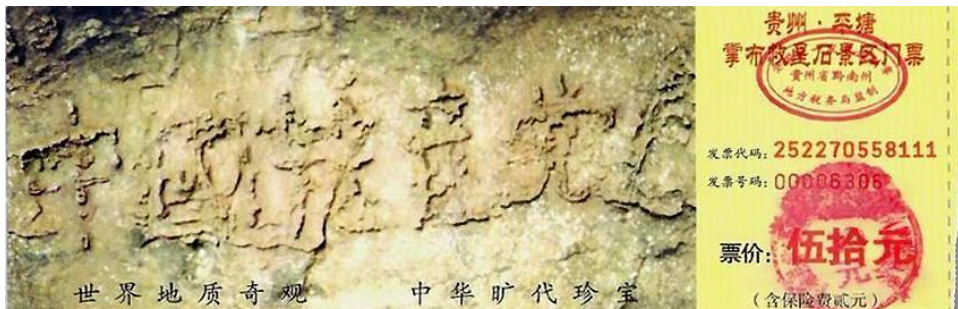 中國共産党亡
世界地质奇观 中华旷代珍宝
贵州·平塘
掌布救星石景区门票
贵州省黔南州
地方税务局监制
发票代码: 252270558111
发票号码: 00006306
票价: 伍拾元
(含保险费贰元)